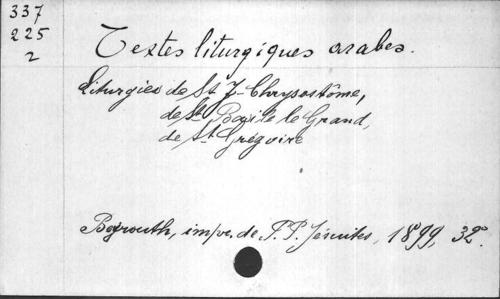 337
225
2
Textes liturgiques arabes.
Liturgies de St J. Chrysostôme,
de St Basile le Grand,
de St Grégoire
Beyrouth, impr. de P.P. Jésuites, 1899, 32°